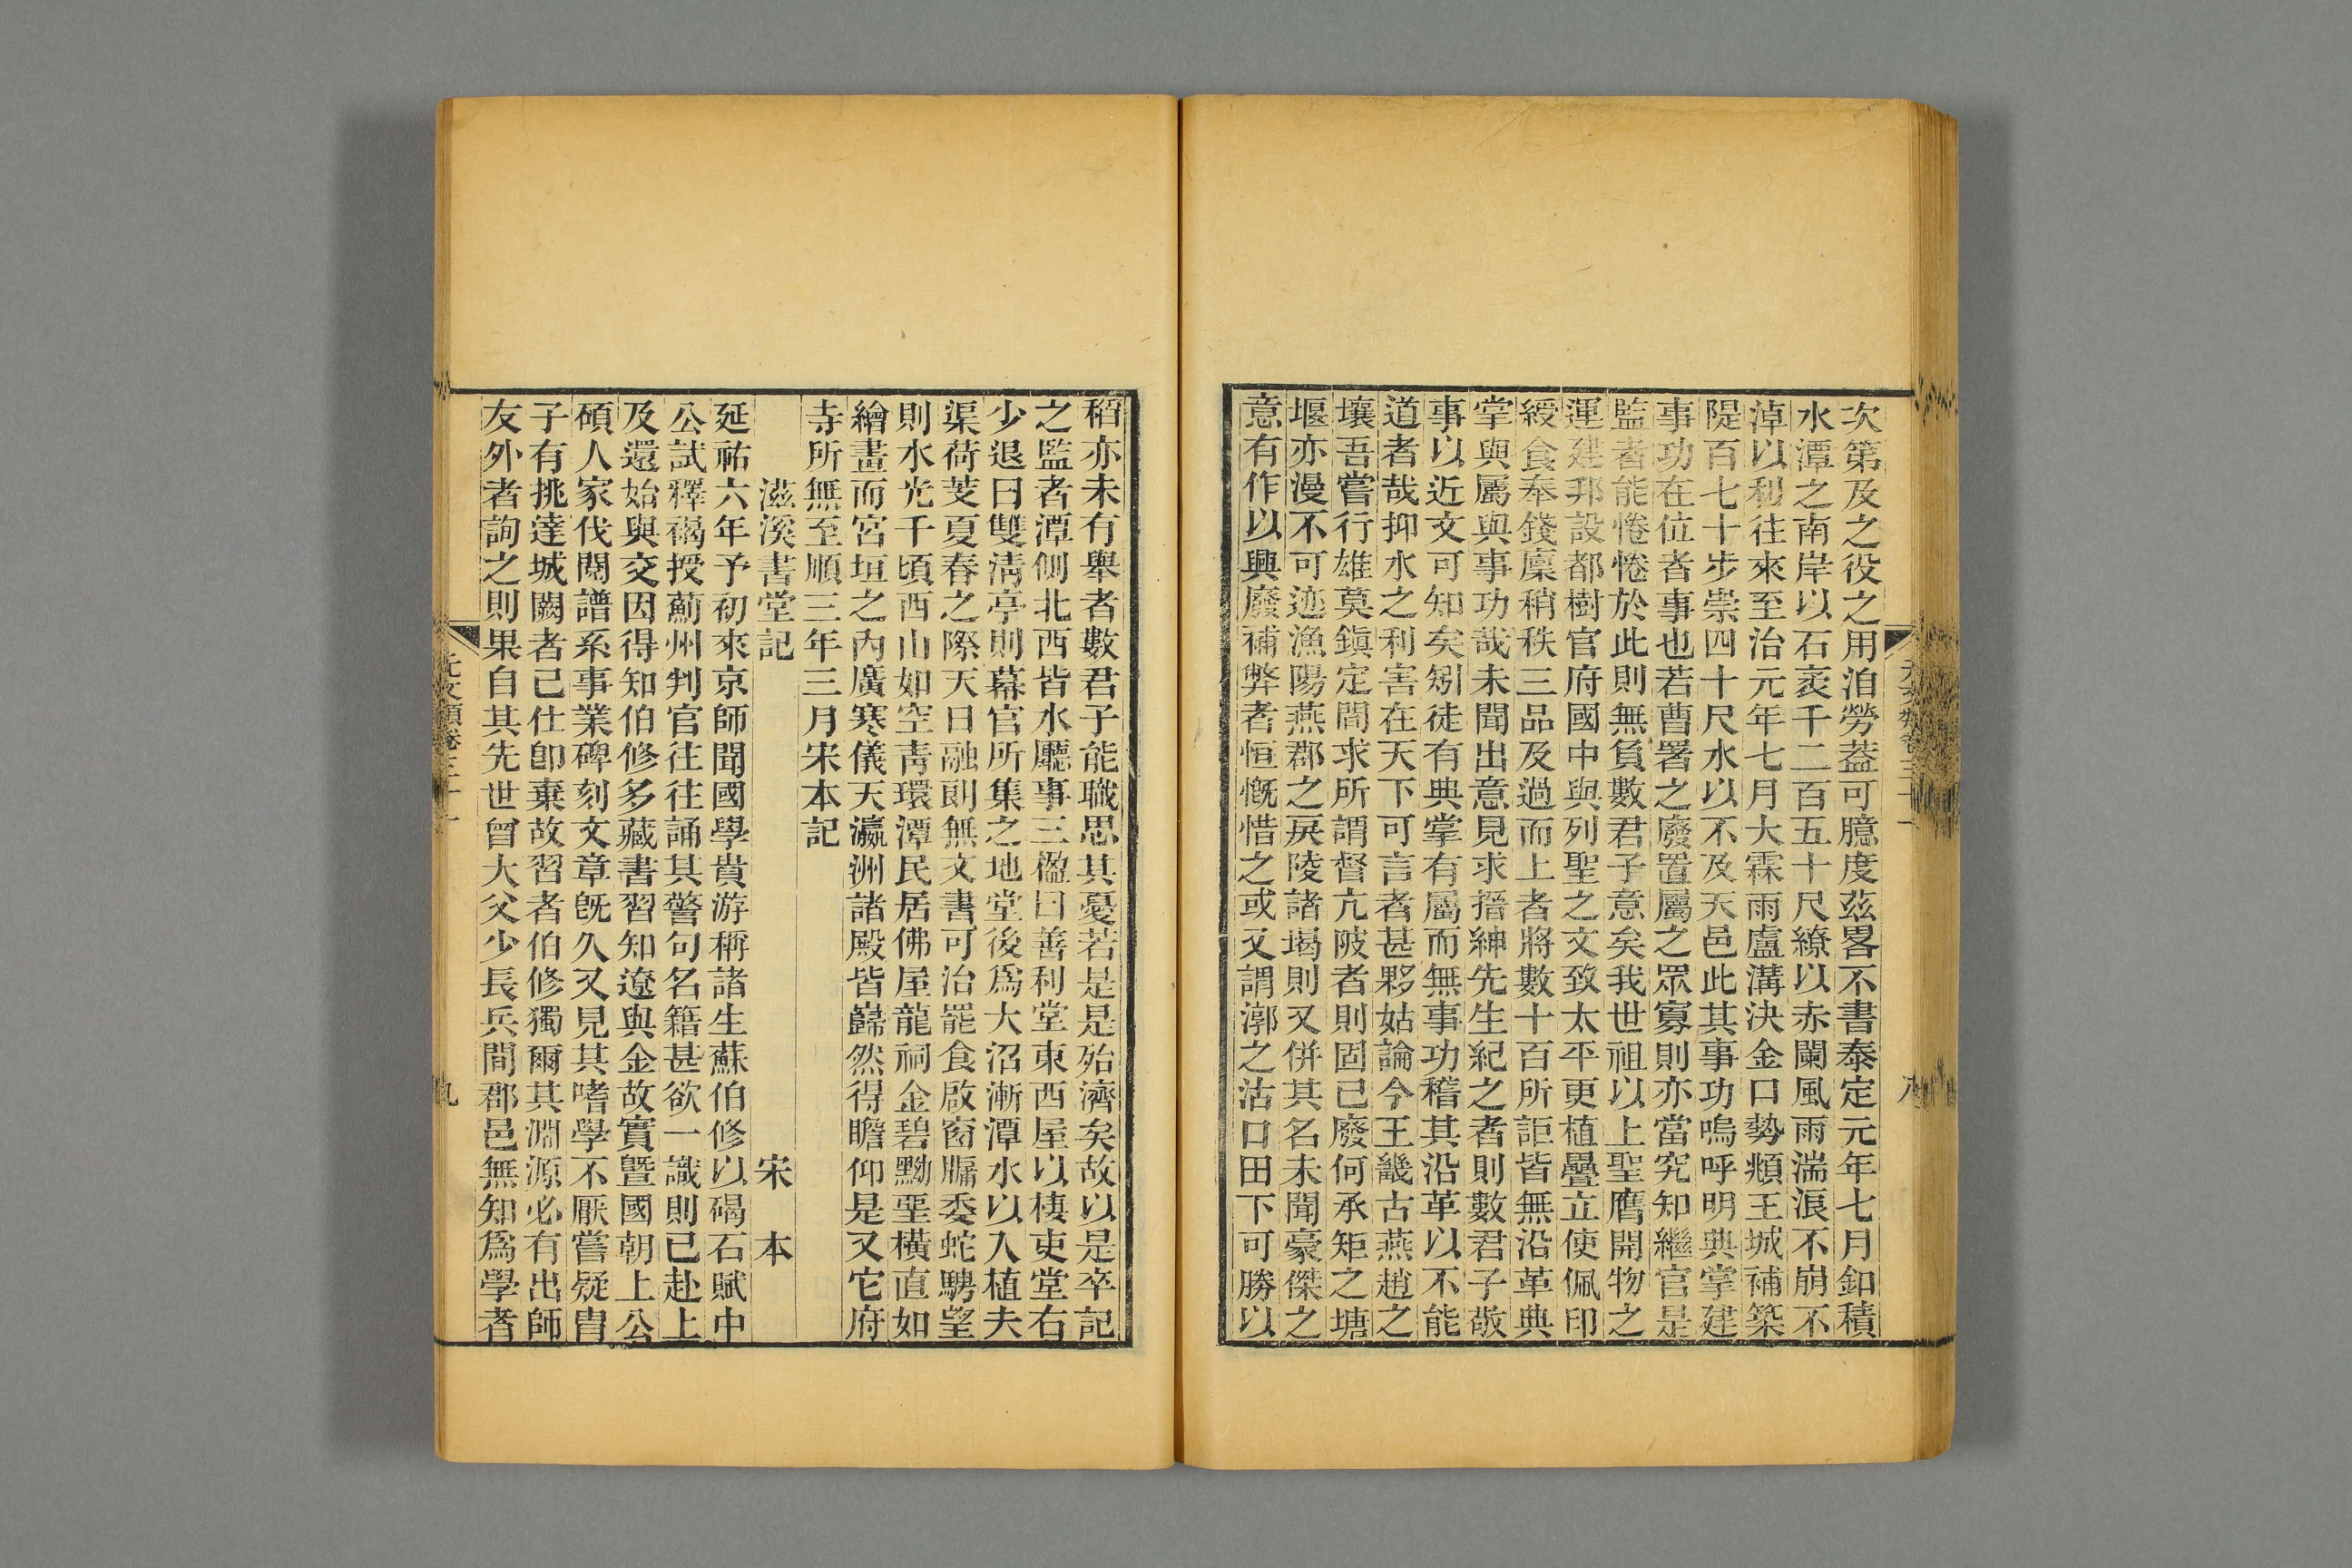 次第及之役之用洎勞蓋可臆度茲畧不書泰定元年七月釦積
水潭之南岸以石袤千二百五十尺繚以赤闌風雨湍浪不崩不
淖以利往來至治元年七月大霖雨盧溝決金口勢頫王城補築
隄百七十步崇四十尺水以不及天邑此其事功嗚呼明典掌建
事功在位者事也若曹署之廢置屬之眾寡則亦當究知繼官是
監者能惓惓於此則無負數君子意矣我世祖以上聖膺開物之
運建邦設都樹官府國中與列聖之文致太平更植疊立使佩印
綬食奉錢廩稍秩三品及過而上者將數十百所詎皆無沿革典
掌與屬與事功哉未聞出意見求搢紳先生紀之者則數君子敬
事以近文可知矣矧徒有典掌有屬而無事功稽其沿革以不能
道者哉抑水之利害在天下可言者甚夥姑論今王畿古燕趙之
壤吾嘗行雄莫鎮定間求所謂督亢陂者則固已廢何承矩之塘
堰亦漫不可迹漁陽燕郡之戾陵諸堨則又併其名未聞豪傑之
意有作以興廢補弊者恒慨惜之或又謂漷之沽口田下可勝以
元文類卷三十一
八
稻亦未有舉者數君子能職思其憂若是是殆濟矣故以是卒記
之監者潭側北西皆水廳事三楹曰善利堂東西屋以棲吏堂右
少退曰雙清亭則幕官所集之地堂後爲大沼漸潭水以入植夫
渠荷芰夏春之際天日融朗無文書可治罷食啟窗牖委蛇騁望
則水光千頃西山如空青環潭民居佛屋龍祠金碧黝堊橫直如
繪畫而宮垣之內廣寒儀天瀛洲諸殿皆巋然得瞻仰是又它府
寺所無至順三年三月宋本記
滋溪書堂記 宋本
延祐六年予初來京師聞國學貴游稱諸生蘇伯修以碣石賦中
公試釋褐授薊州判官往往誦其警句名籍甚欲一識則已赴上
及還始與交因得知伯修多藏書習知遼與金故實曁國朝上公
碩人家伐閥譜系事業碑刻文章旣久又見其嗜學不厭嘗疑胄
子有挑達城闕者已仕卽棄故習者伯修獨爾其淵源必有出師
友外者詢之則果自其先世曾大父少長兵間郡邑無知爲學者
元文類卷三十一
九